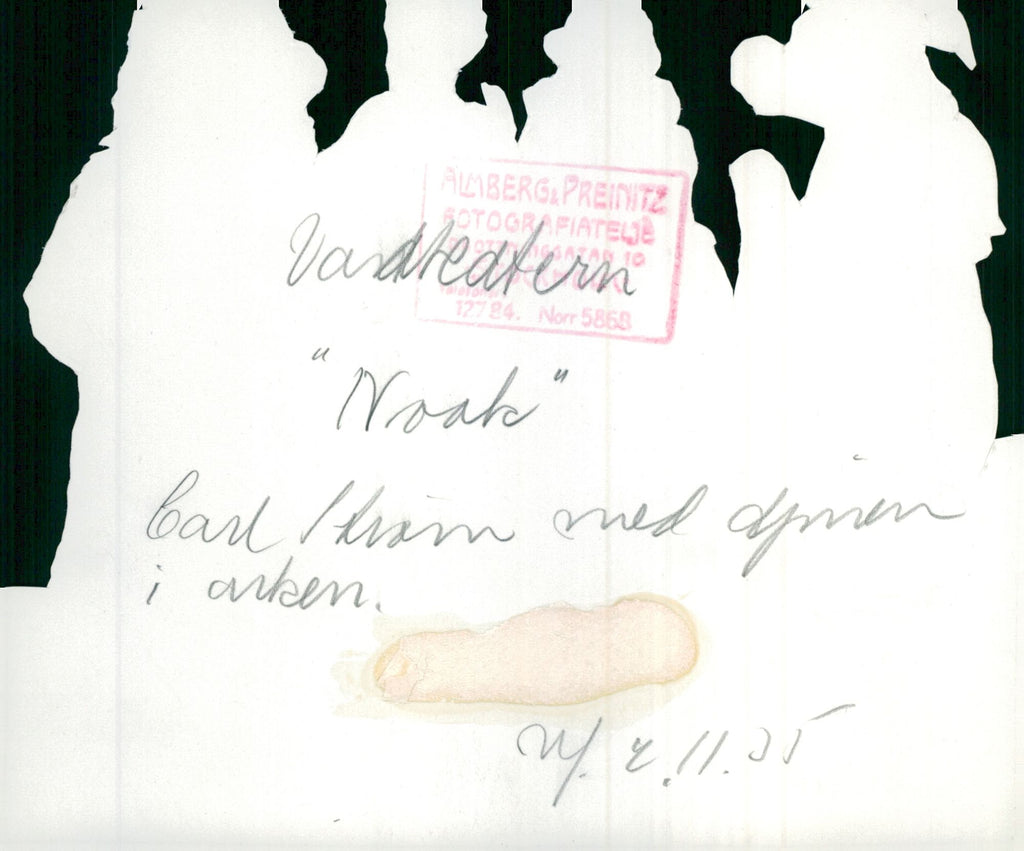 ALMBERG & PREINITZ
FOTOGRAFIATELJÉ
10
12784. Norr 5868
"Noak"
Carl Ström med djuren
i arken.
2.11.35